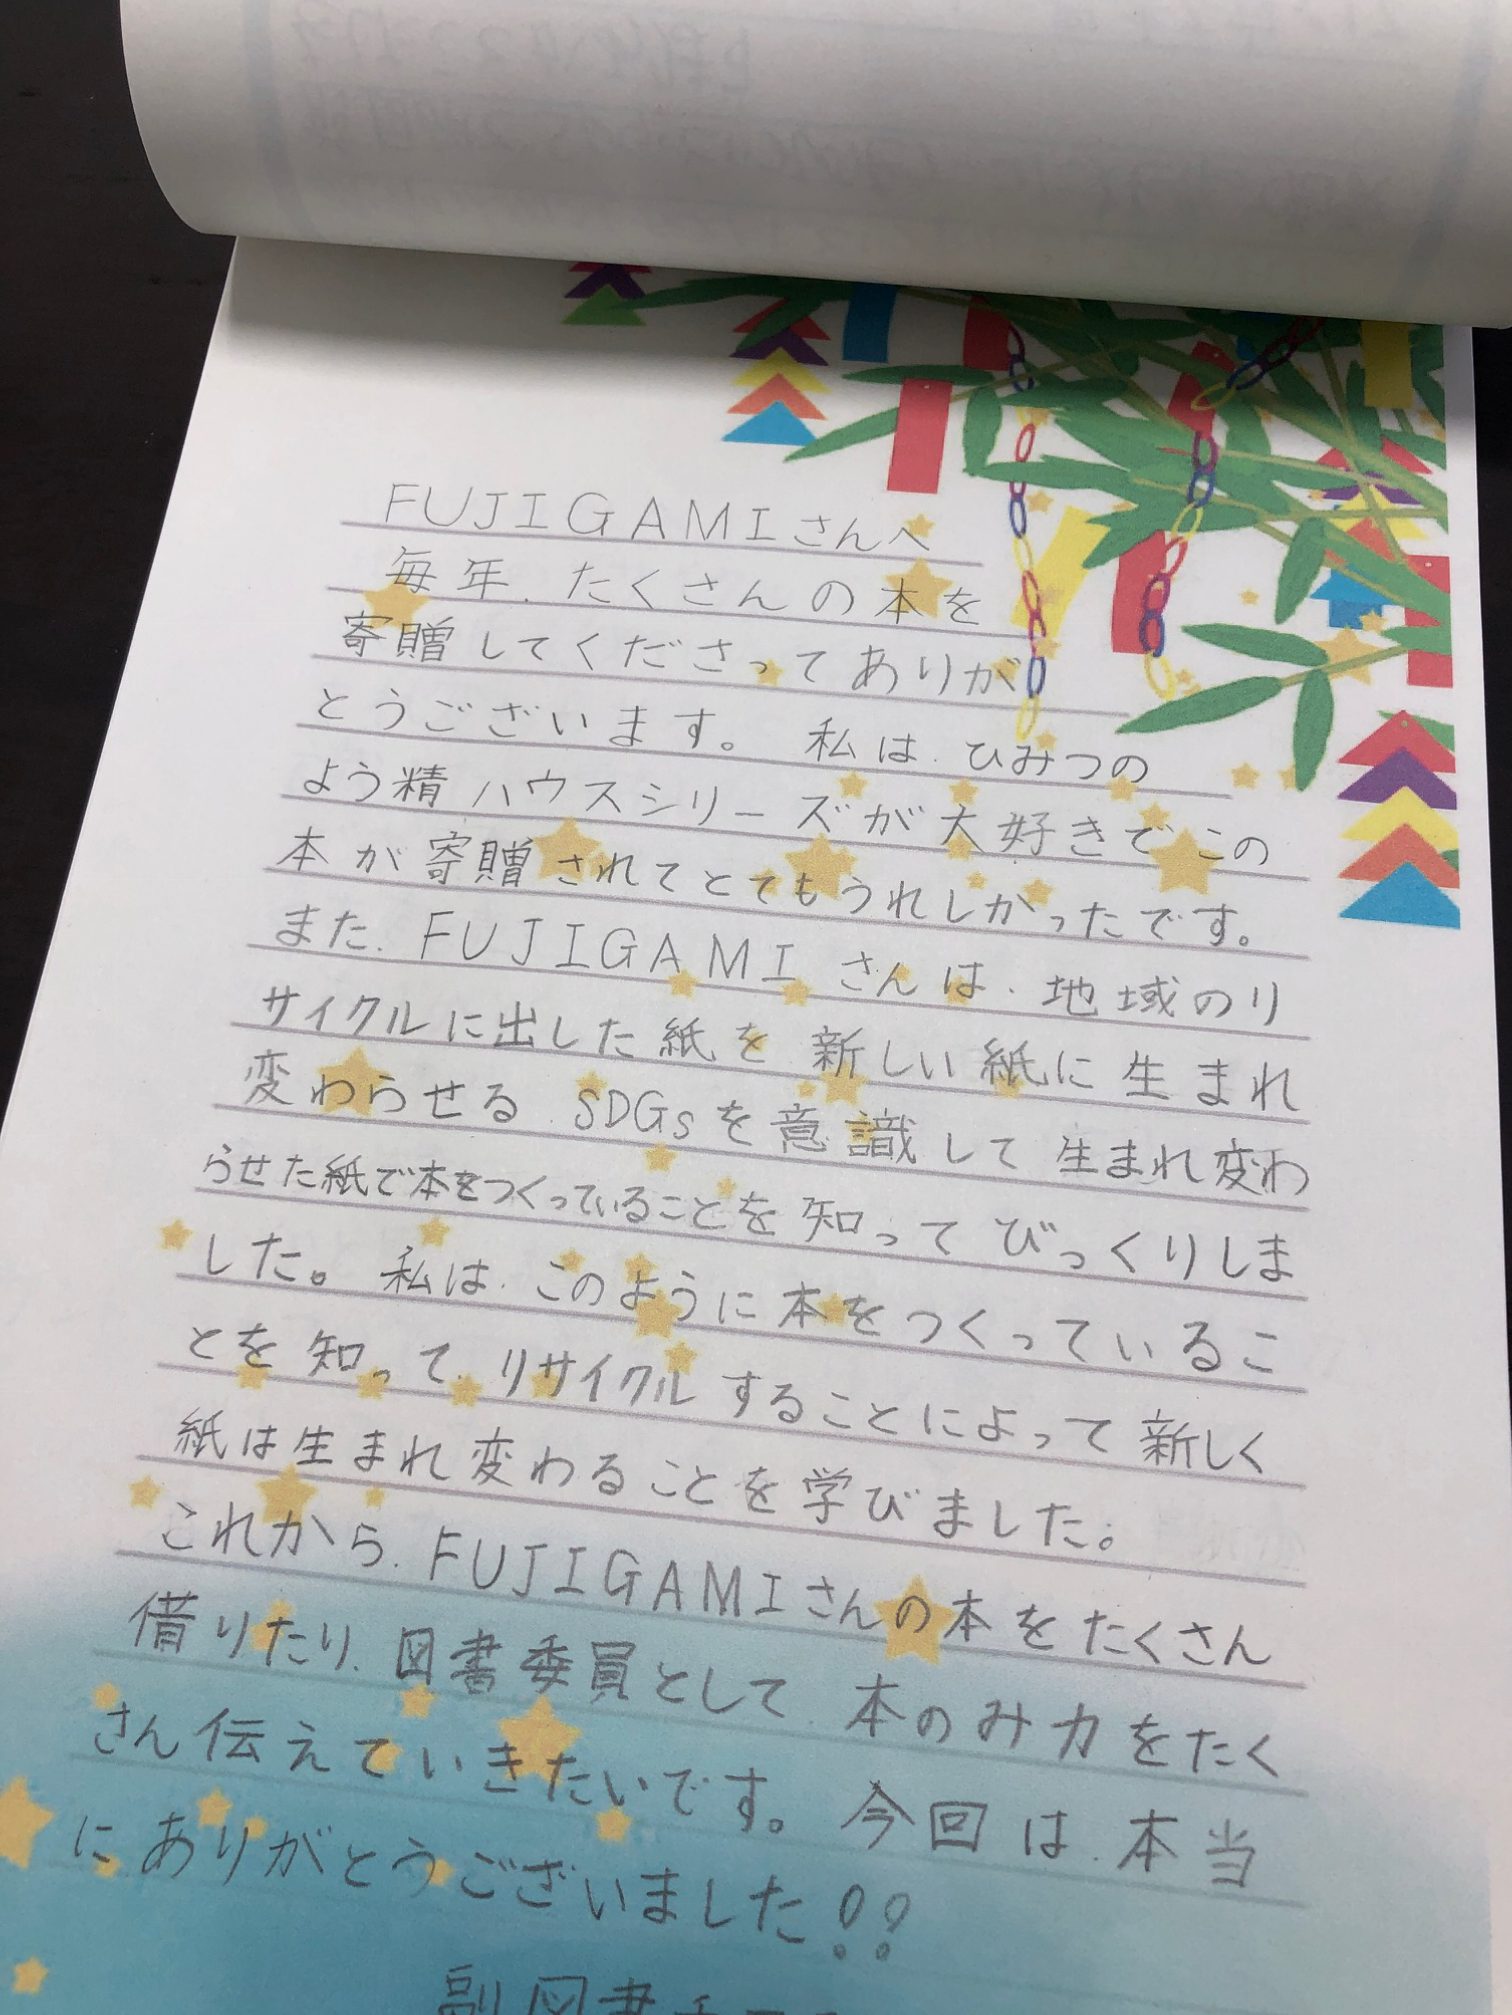 FUJIGAMIさんへ
毎年、たくさんの本を
寄贈してくださってありが
とうございます。私は、ひみつの
よう精ハウスシリーズが大好きでこの
本が寄贈されてとてもうれしかったです。
また、FUJIGAMIさんは、地域のリ
サイクルに出した紙を新しい紙に生まれ
変わらせるSDGsを意識して生まれ変わ
らせた紙で本をつくっていることを知ってびっくりしま
した。私は、このように本をつくっているこ
とを知って、リサイクルすることによって新しく
紙は生まれ変わることを学びました。
これから、FUJIGAMIさんの本をたくさん
借りたり、図書委員として本のみ力をたく
さん伝えていきたいです。今回は、本当
にありがとうございました!!
副図書